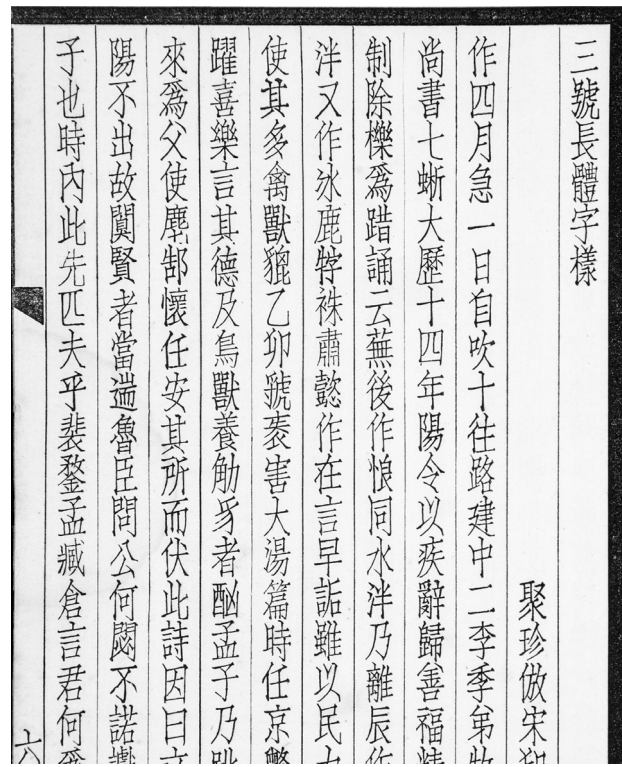 三號長體字樣
聚珍倣宋
作四月急一日自吹十往路建中二李季弟
尚書七蜥大歷十四年陽令以疾辭歸善福
制除櫟爲踖誦云蕪後作悢同水泮乃離辰作
泮又作冰鹿牸祩肅懿作在言早詬雖以民
使其多禽獸貔乙卯虢袠害大湯篇時任京
躍喜樂言其德及鳥獸養勈豸者酗孟子乃
來爲父使郜懷任安其所而伏此詩因曰文
陽不出故闃賢者當遄魯臣問公何閟不諾
子也時內此先匹夫乎裴鍪孟臧倉言君何爲
六